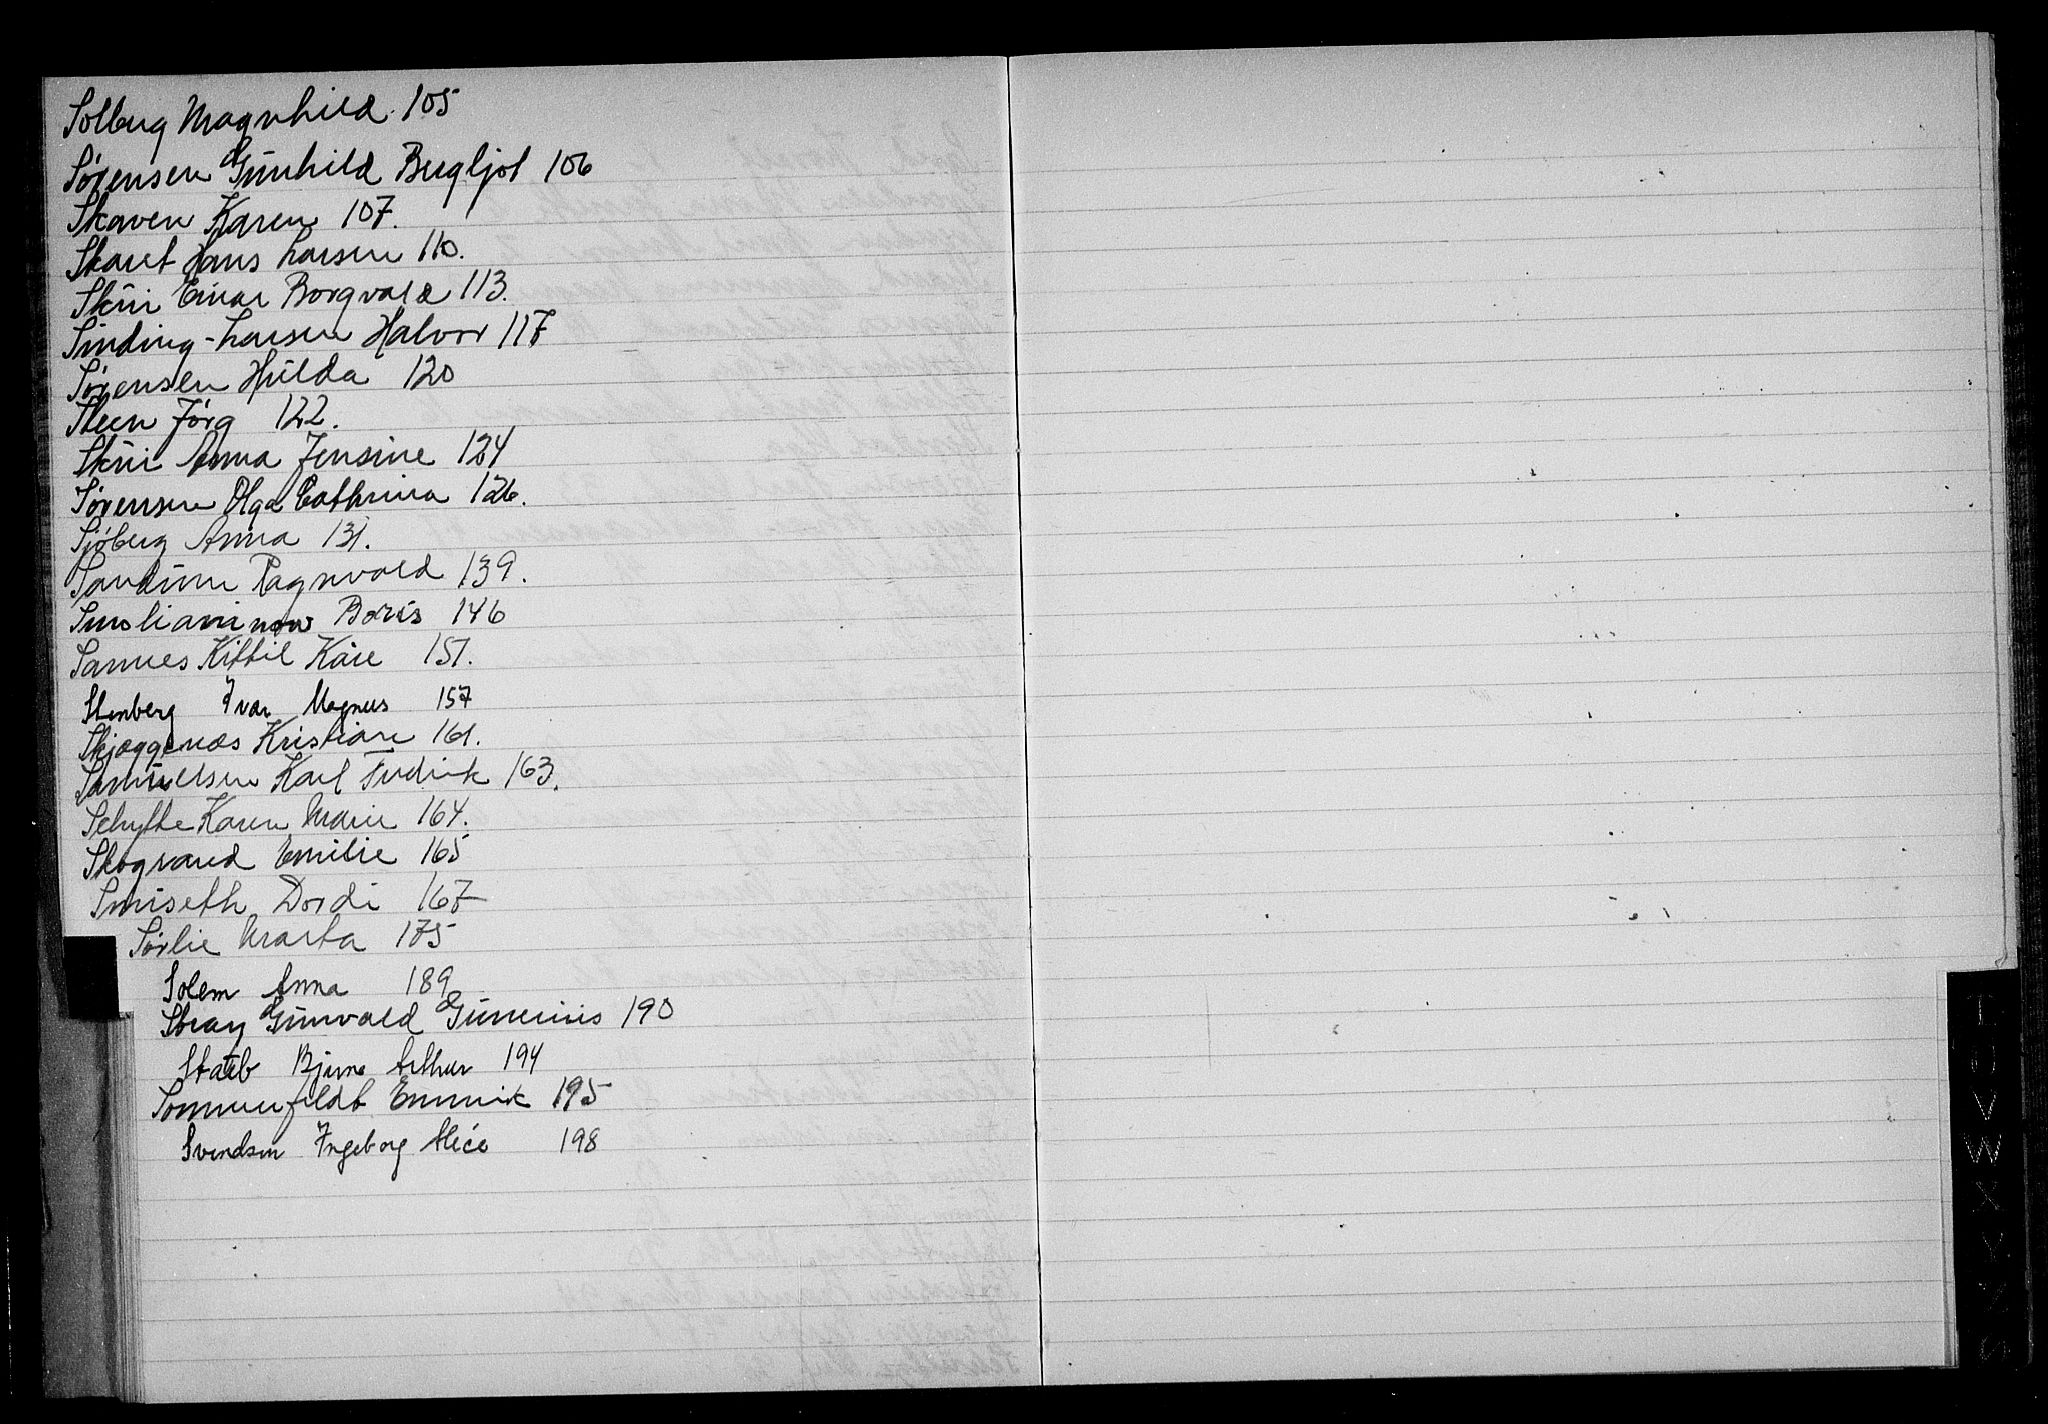 Solberg Magnhild. 105
Sørensen Gunhild Bergljot 106
Skaven Karen 107.
Skaret Hans Larsen 110.
Skui Einar Borgvald 113.
Sinding-Larsen Halvor 117
Sørensen Hulda 120
Steen Jörg 122.
Skui Anna Jensine 124
Sørensen Olga Cathrina 126.
Sjöberg Anna 131.
Sandum Ragnvald 139.
Smolianinow Boris 146
Samnes Kittil Kåre 151.
Stenberg Ivar Magnus 157
Skjæggenæs Kristian 161.
Samuelsen Karl Fredrik 163.
Schytte Karen Marie 164.
Skogrand Emilie 165
Smiseth Dordi 167
Sørlie Marta 175
Solem Anna 189
Stray Gunvald Gunerius 190
Staub Bjarne Arthur 194
Sommerfeldt Emmerik 195
Svendsen Ingeborg Alice 198
T
U V
W
X Y
Æ Ø